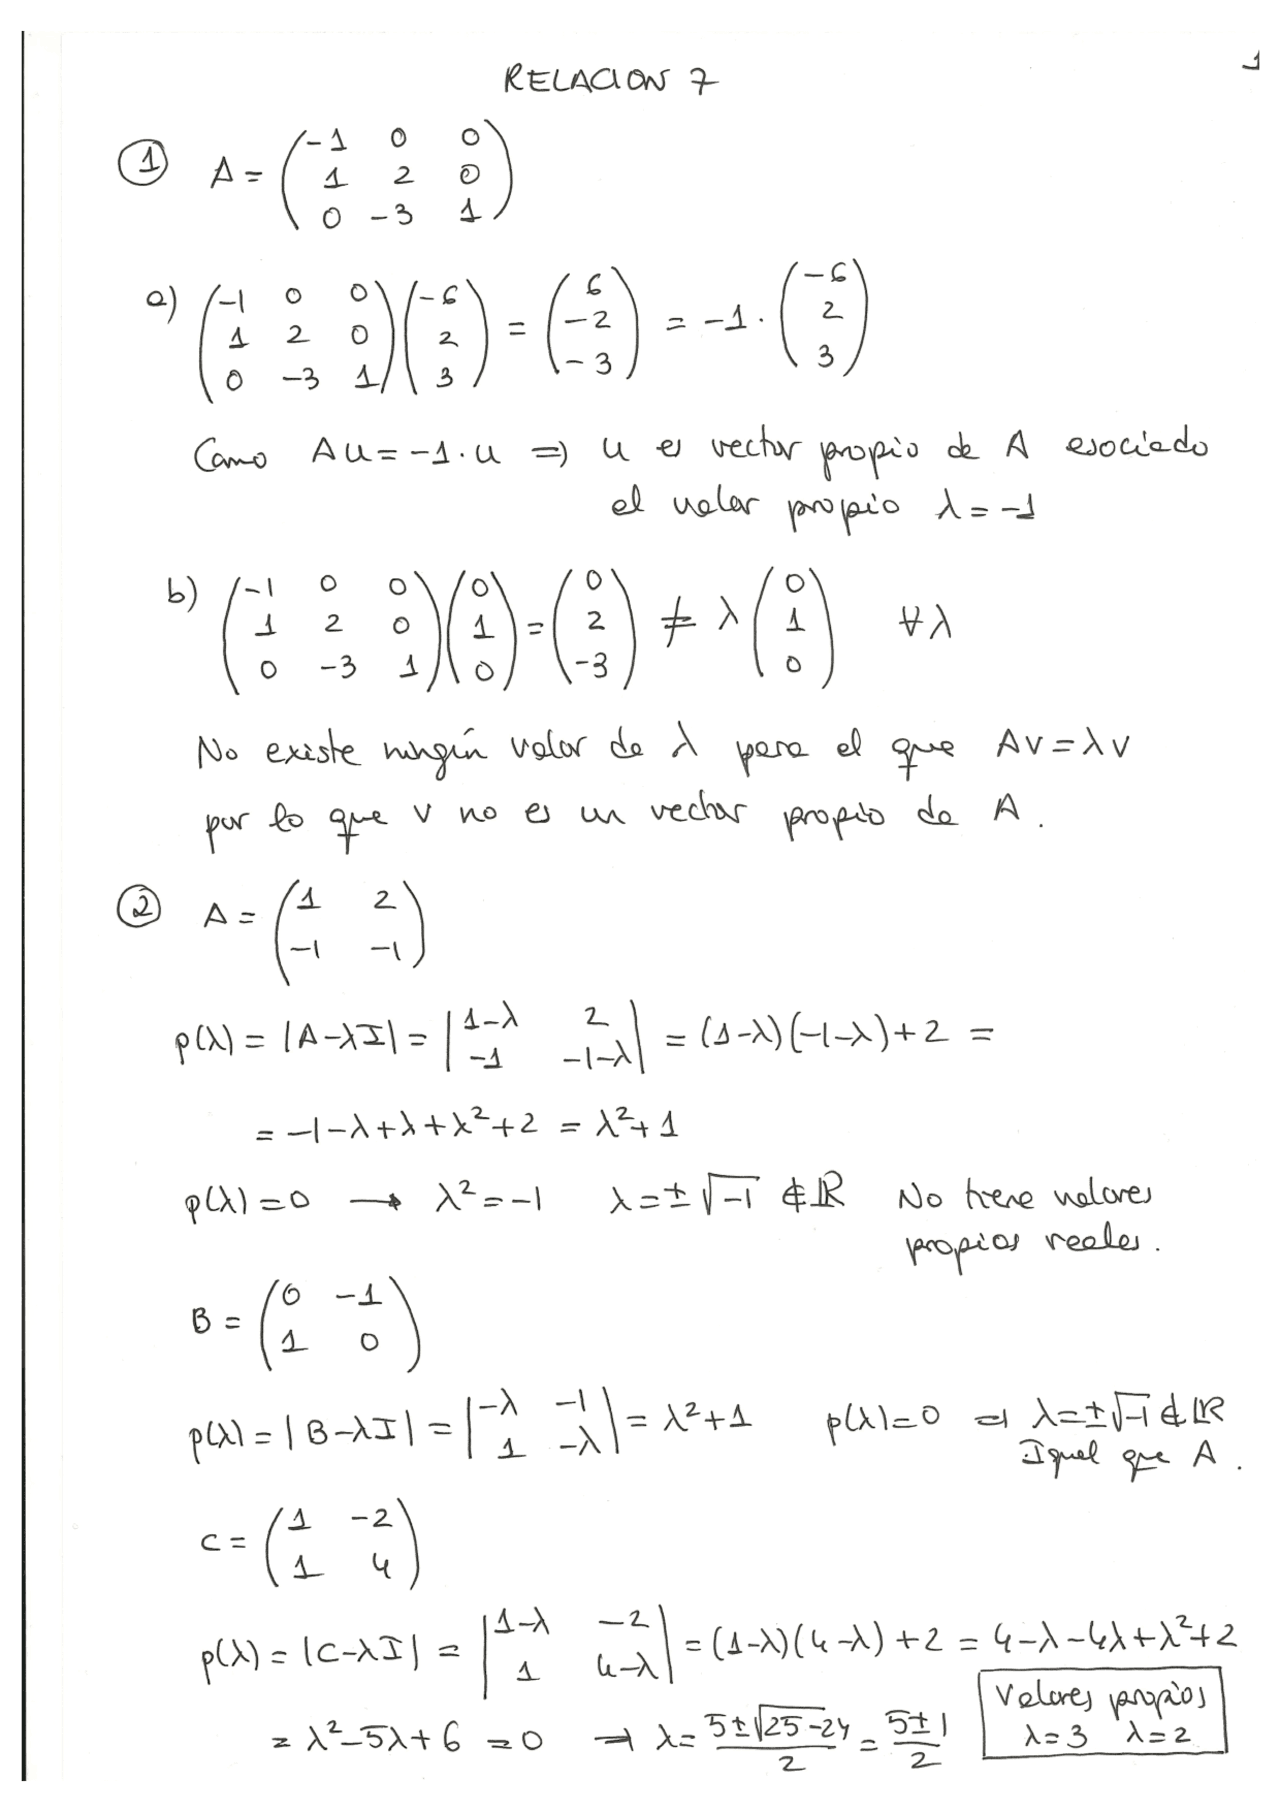 1
RELACION 7
① A = (-1 0 0; 1 2 0; 0 -3 1)
a) (-1 0 0; 1 2 0; 0 -3 1) (-6; 2; 3) = (6; -2; -3) = -1 · (-6; 2; 3)
Como Au = -1·u ⇒ u es vector propio de A asociado
al valor propio λ = -1
b) (-1 0 0; 1 2 0; 0 -3 1) (0; 1; 0) = (0; 2; -3) ≠ λ (0; 1; 0) ∀λ
No existe ningún valor de λ para el que Av = λv
por lo que v no es un vector propio de A.
② A = (1 2; -1 -1)
p(λ) = |A-λI| = |1-λ 2; -1 -1-λ| = (1-λ)(-1-λ)+2 =
= -1-λ+λ+λ²+2 = λ²+1
p(λ)=0 → λ²=-1 λ=±√-1 ∉ ℝ No tiene valores
propios reales.
B = (0 -1; 1 0)
p(λ) = |B-λI| = |-λ -1; 1 -λ| = λ²+1 p(λ)=0 ⇒ λ=±√-1 ∉ ℝ
Igual que A.
C = (1 -2; 1 4)
p(λ) = |C-λI| = |1-λ -2; 1 4-λ| = (1-λ)(4-λ)+2 = 4-λ-4λ+λ²+2
= λ²-5λ+6 = 0 ⇒ λ = (5±√25-24)/2 = (5±1)/2
Valores propios
λ=3 λ=2